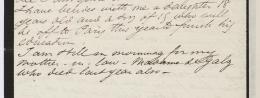 I have besides with me a daughter 18
years old and a boy of 15 who will
go to Paris this year to finish his
education.
I am still in mourning for my
mother-in-law - Madame de Galz
who died last year also -